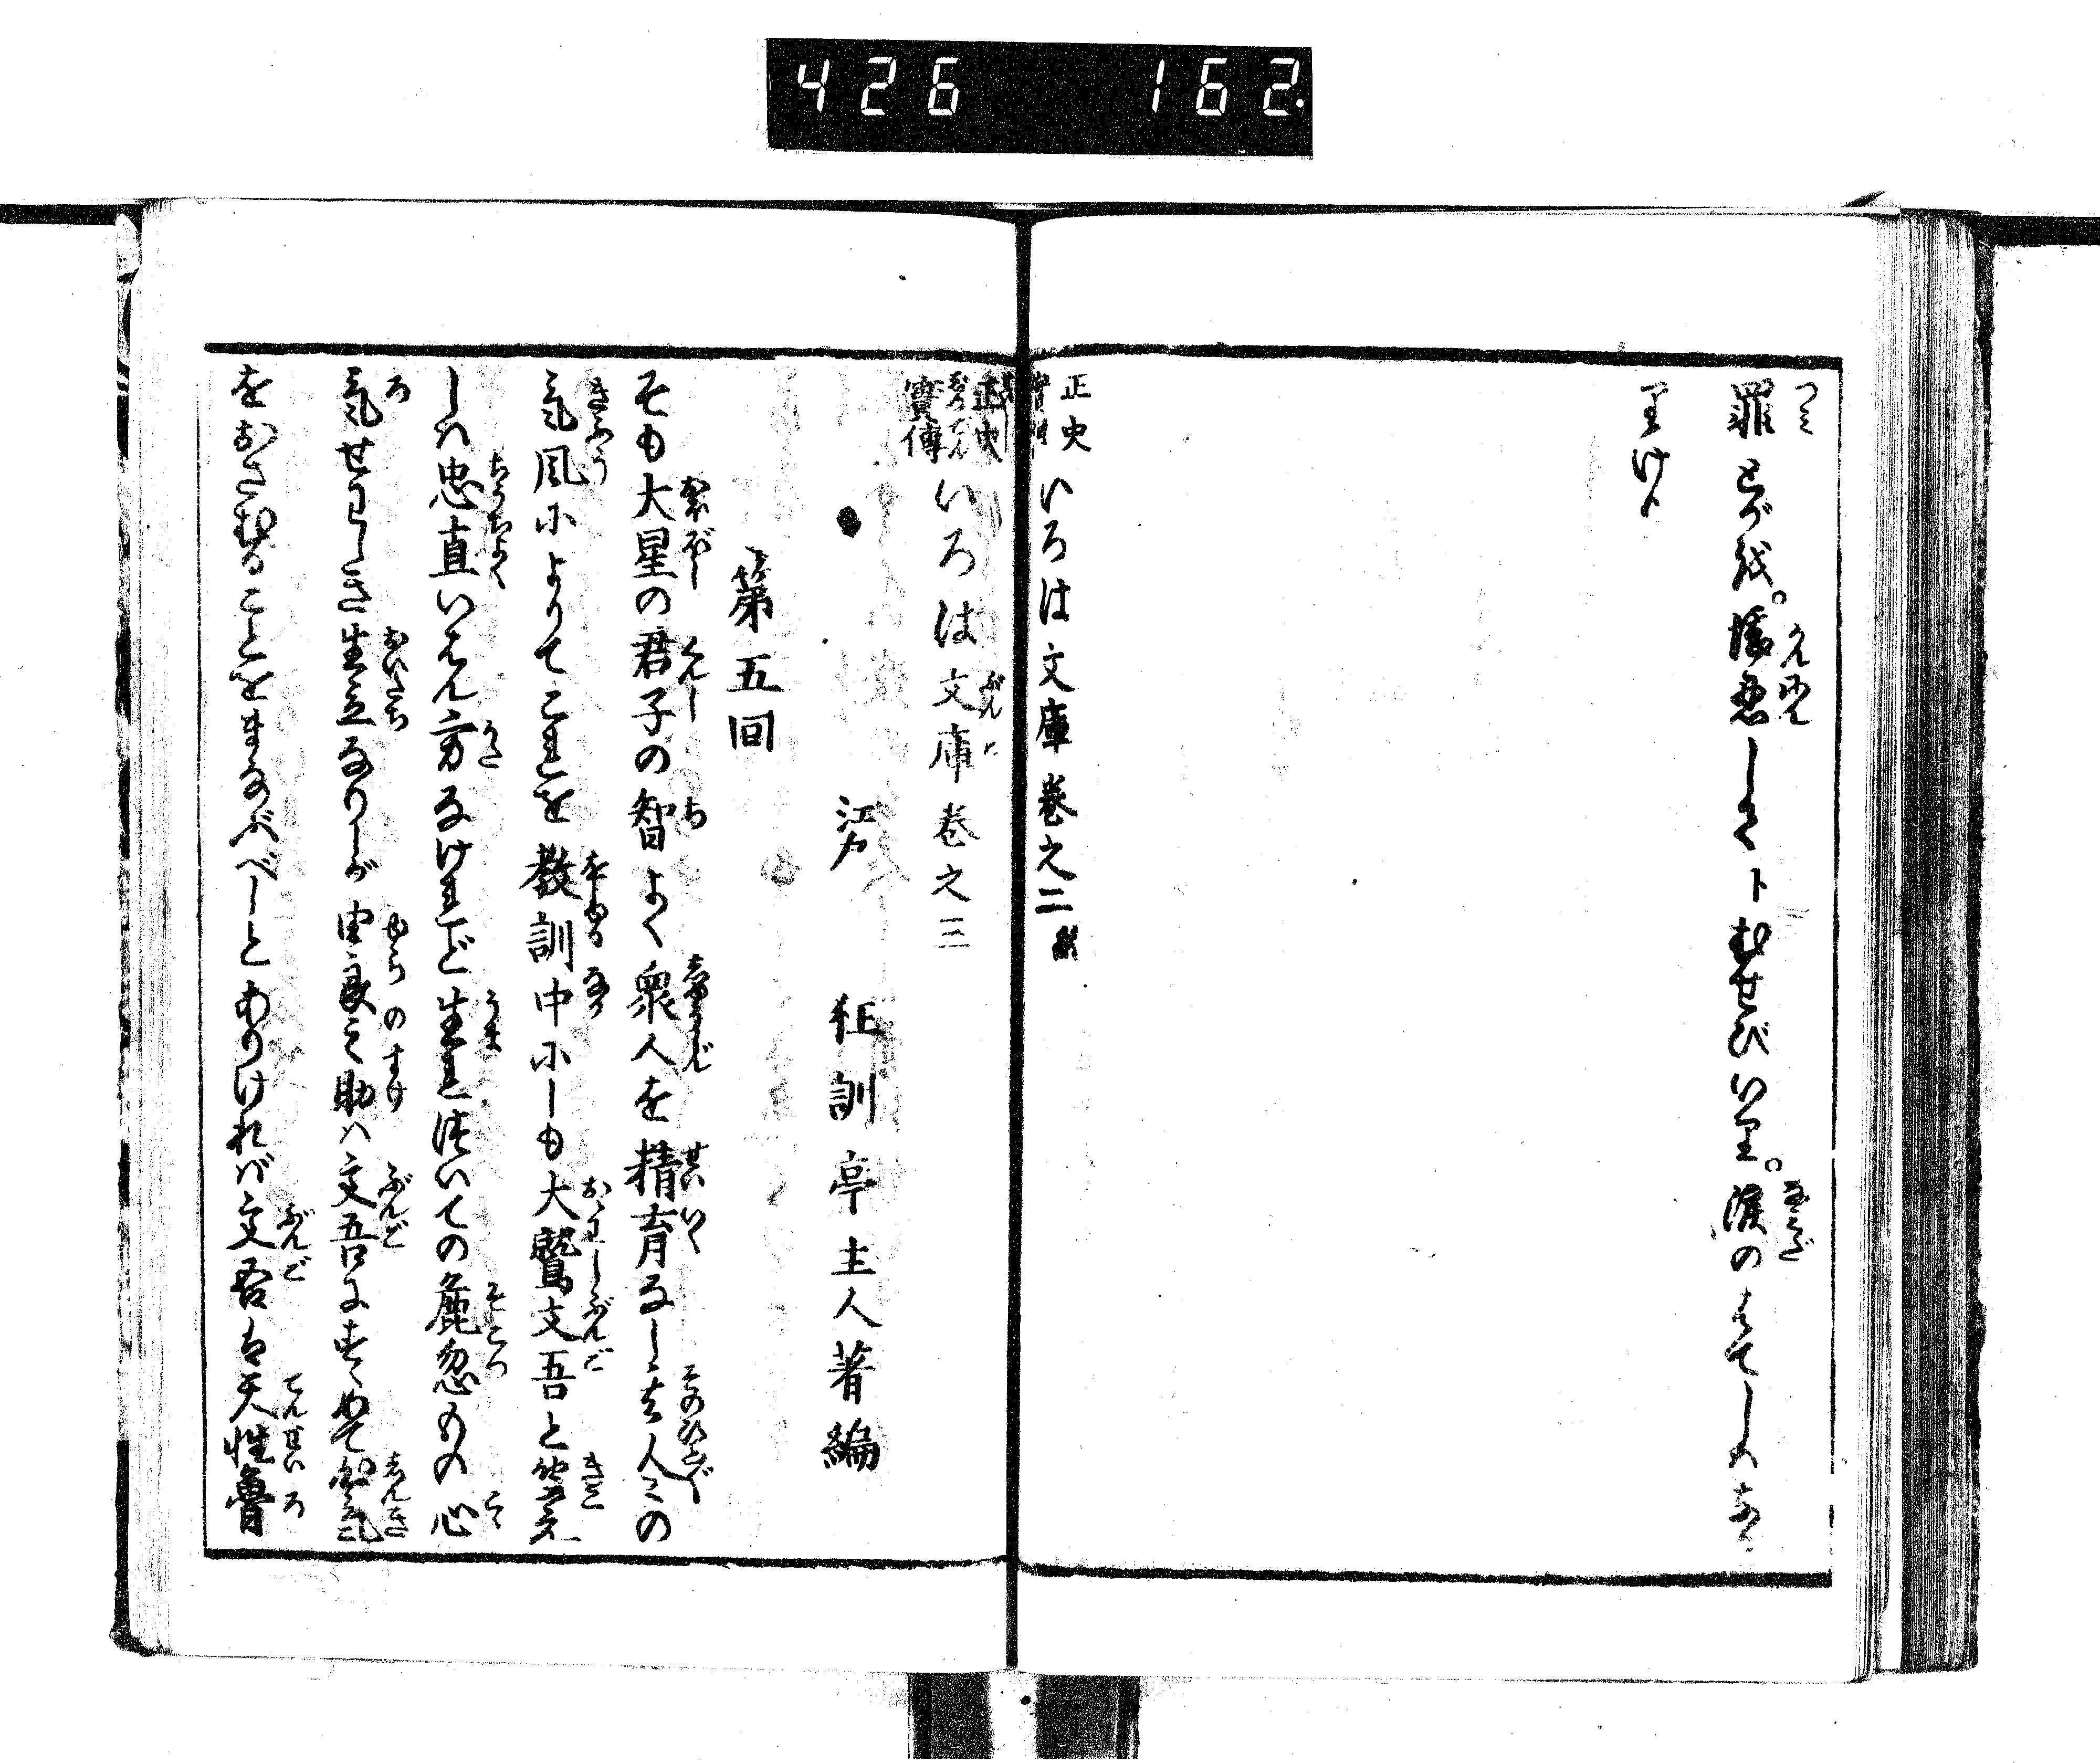 426 162.
罪とが越。懺悔しつゝトむせびいり。涙のはてしハなか
りけり
正史實傳いろは文庫巻之二終
正史實傳いろは文庫巻之三
江戸 狂訓亭主人著編
第五回
そも大星の君子の智よく衆人を精育なし其人〻の
氣風によりてこれを教訓中にしも大鷲文吾と聞え
しハ忠直いちえん方なけれど生れ得いての麁忽もの心
氣せわしき生立なりしが由良之助ハ文吾にすゝめて心氣
をおさむることをまなぶべしとありければ文吾は天性魯